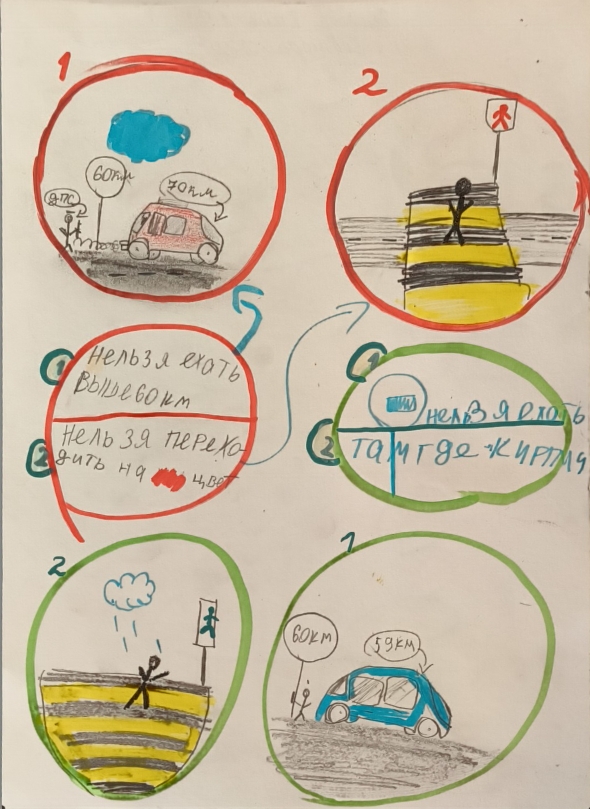 1
2
60км
70км
ДПС
1 нельзя ехать
выше60км
2 нельзя перехо
дить на цвет
1 нельзя ехать
2 там где кирпич
2
1
60км
59км